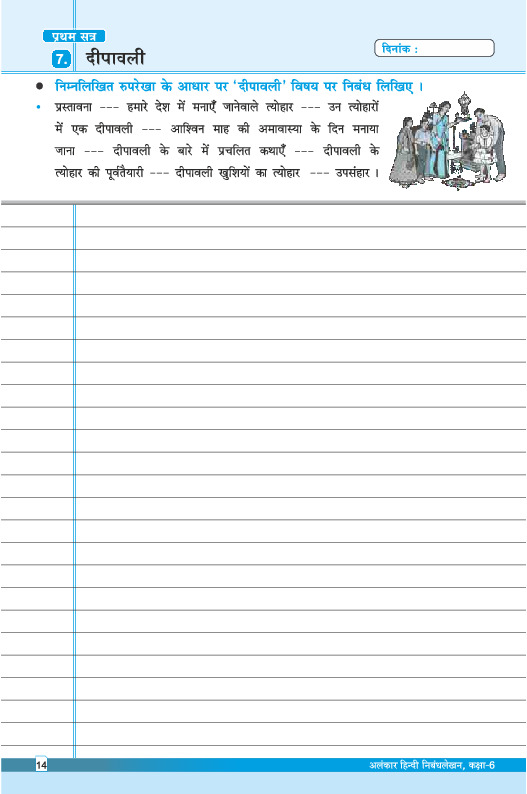 प्रथम सत्र
7. दीपावली
दिनांक :
● निम्नलिखित रुपरेखा के आधार पर ‘दीपावली’ विषय पर निबंध लिखिए ।
• प्रस्तावना --- हमारे देश में मनाएँ जानेवाले त्योहार --- उन त्योहारों
में एक दीपावली --- आश्विन माह की अमावास्या के दिन मनाया
जाना --- दीपावली के बारे में प्रचलित कथाएँ --- दीपावली के
त्योहार की पूर्वतैयारी --- दीपावली खुशियों का त्योहार --- उपसंहार ।
14
अलंकार हिन्दी निबंधलेखन, कक्षा-6